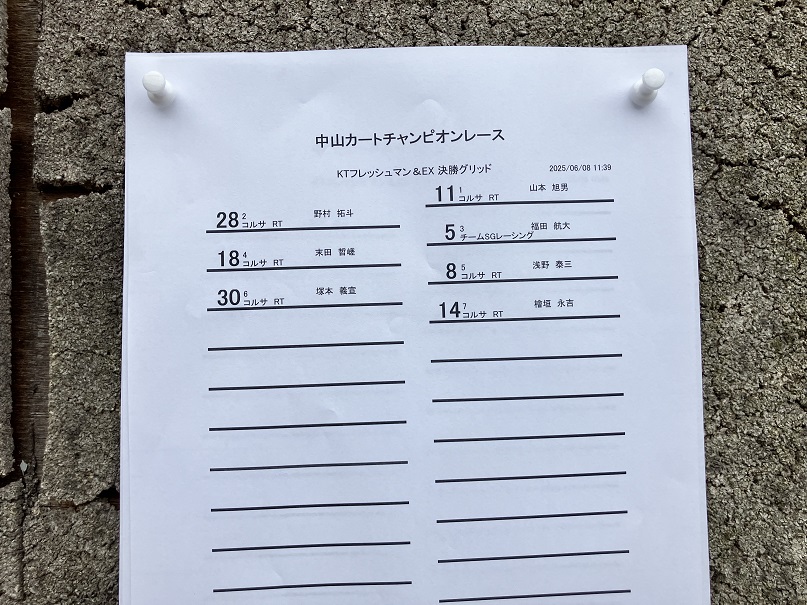 中山カートチャンピオンレース
KTフレッシュマン＆EX 決勝グリッド 2025/06/08 11:39
11 1 山本 旭男
コルサ RT
28 2 野村 拓斗
コルサ RT
5 3 福田 航大
チームSGレーシング
18 4 末田 哲
コルサ RT
8 5 浅野 泰三
コルサ RT
30 6 塚本 義宣
コルサ RT
14 7 檜垣 永吉
コルサ RT